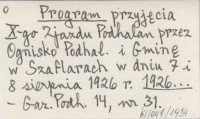 Program przyjęcia
X-go Zjazdu Podhalan przez
Ognisko Podhal. i Gminę
w Szaflarach w dniu 7 i
8 sierpnia 1926 r. 1926...
- Gaz. Podh. 14, nr 31.